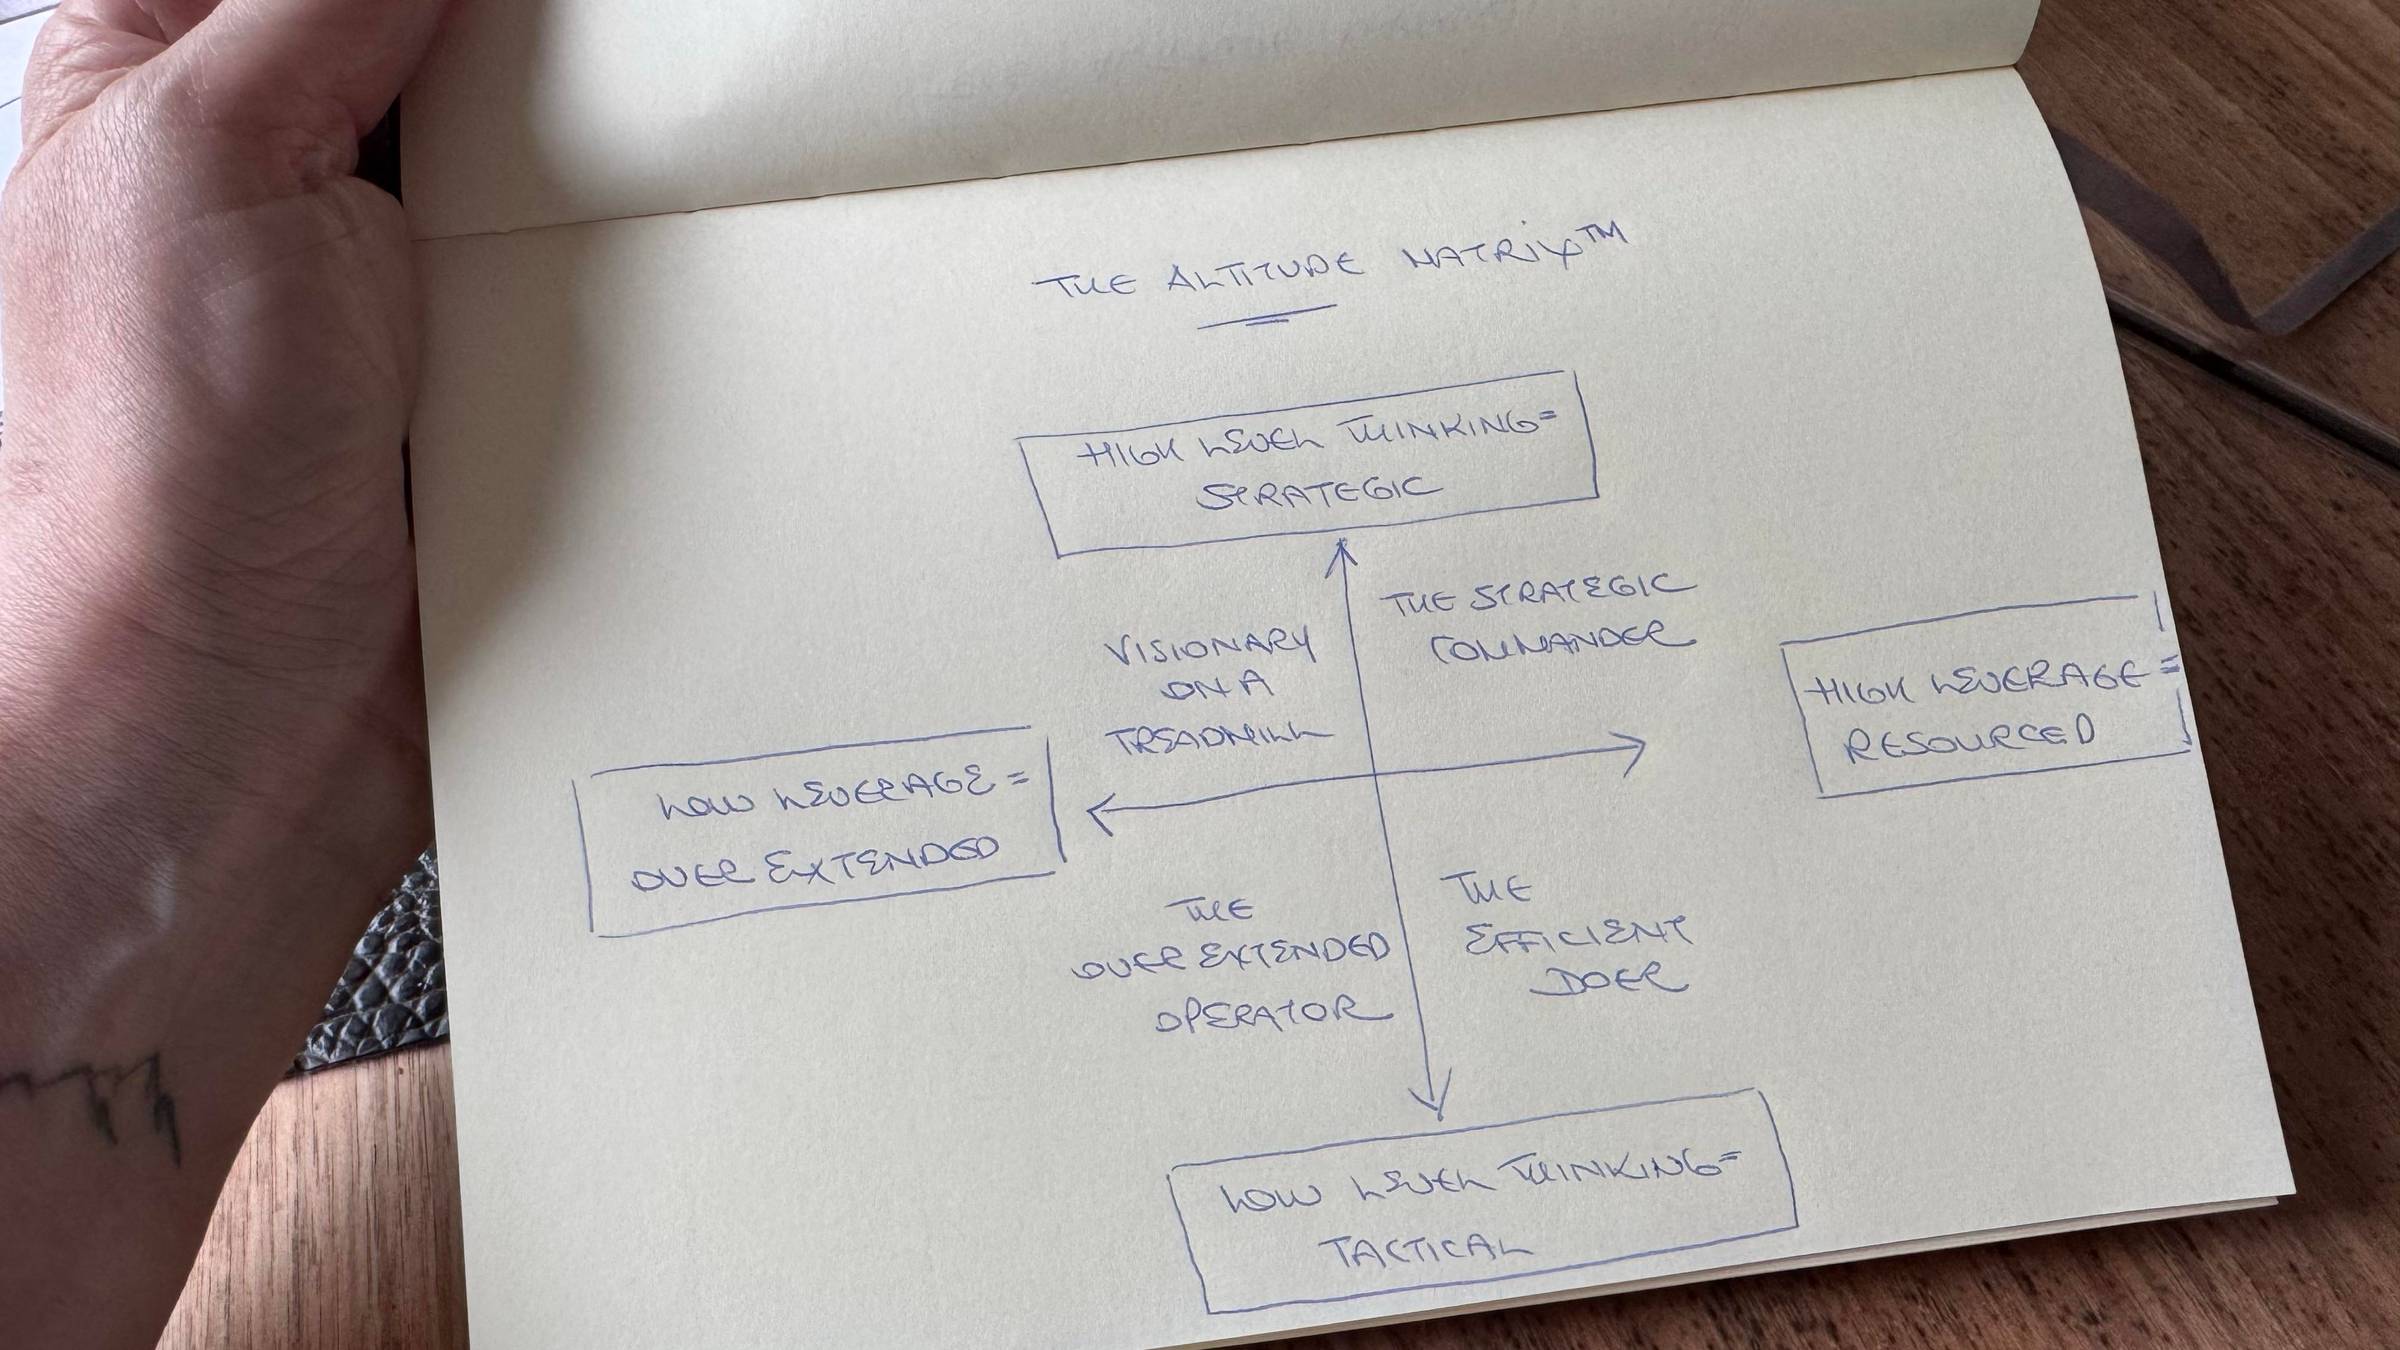 THE ALTITUDE MATRIX™
HIGH LEVEL THINKING=
STRATEGIC
VISIONARY
ON A
TREADMILL
THE STRATEGIC
COMMANDER
LOW LEVERAGE =
OVER EXTENDED
HIGH LEVERAGE =
RESOURCED
THE
OVER EXTENDED
OPERATOR
THE
EFFICIENT
DOER
LOW LEVEL THINKING=
TACTICAL